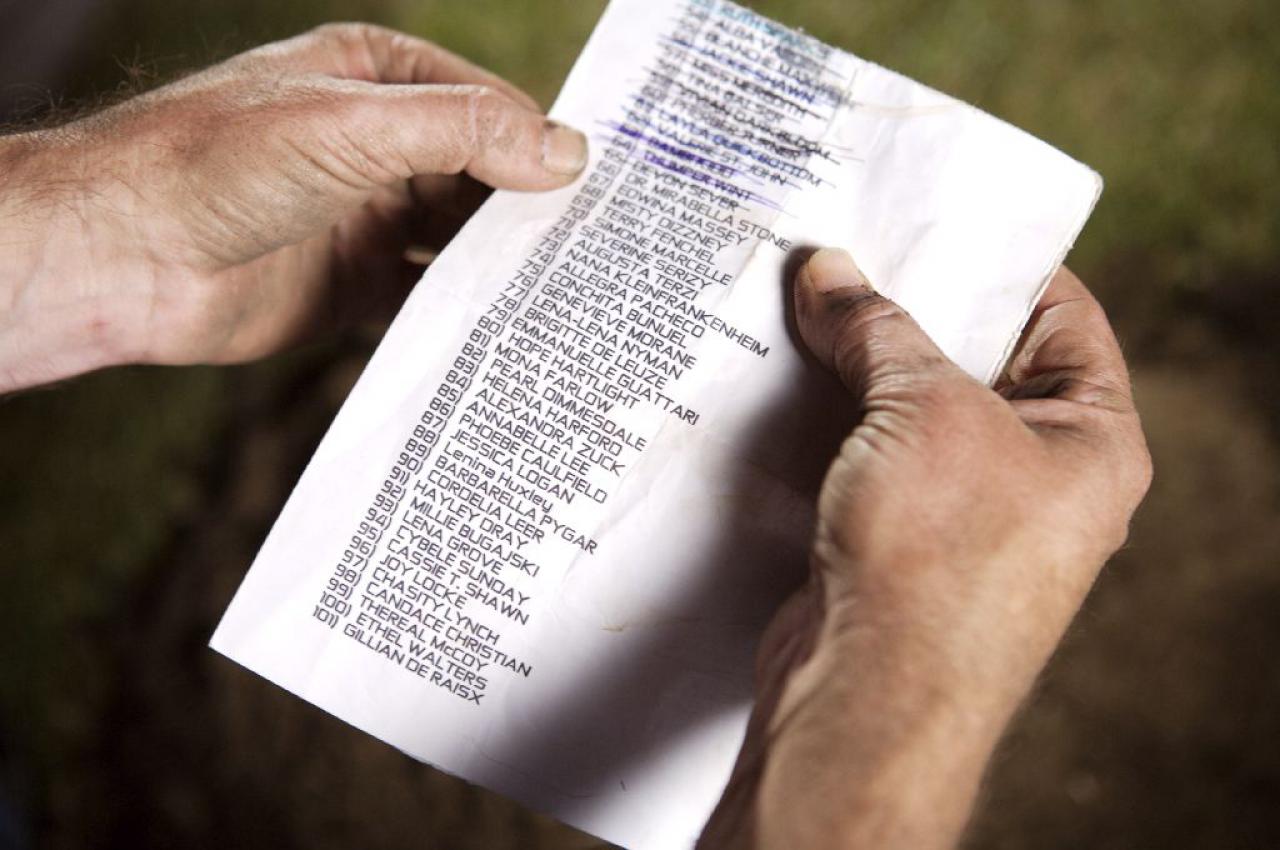 65) DEVON SEVER
66) DR. MIRABELLA STONE
67) EDWINA MASSEY
68) MISTY DIZZNEY
69) TERRY FENCHEL
70) SIMONE MARCELLE
71) SEVERINE SERIZY
72) AUGUSTA TERZI
73) NANA KLEINFRANKENHEIM
74) ALLEGRA PACHECO
75) CONCHITA BUNUEL
76) GENEVIEVE MORANE
77) LENA-LENA NYMAN
78) BRIGITTE DE LEUZE
79) EMMANUELLE GUATTARI
80) HOPE HARTLIGHT
81) MONA FARLOW
82) PEARL DIMMESDALE
83) HELENA HARFORD
84) ALEXANDRA ZUCK
85) ANNABELLE LEE
86) PHOEBE CAULFIELD
87) JESSICA LOGAN
88) Lenina Huxley
89) BARBARELLA PYGAR
90) CORDELIA LEER
91) HAYLEY DRAY
92) MILLIE BUGAJSKI
93) LENA GROVE
94) CYBELE SUNDAY
95) CASSIE T. SHAWN
96) JOY LOCKE
97) CHASITY LYNCH
98) CANDACE CHRISTIAN
99) THEREAL McCOY
100) ETHEL WALTERS
101) GILLIAN DE RAISX